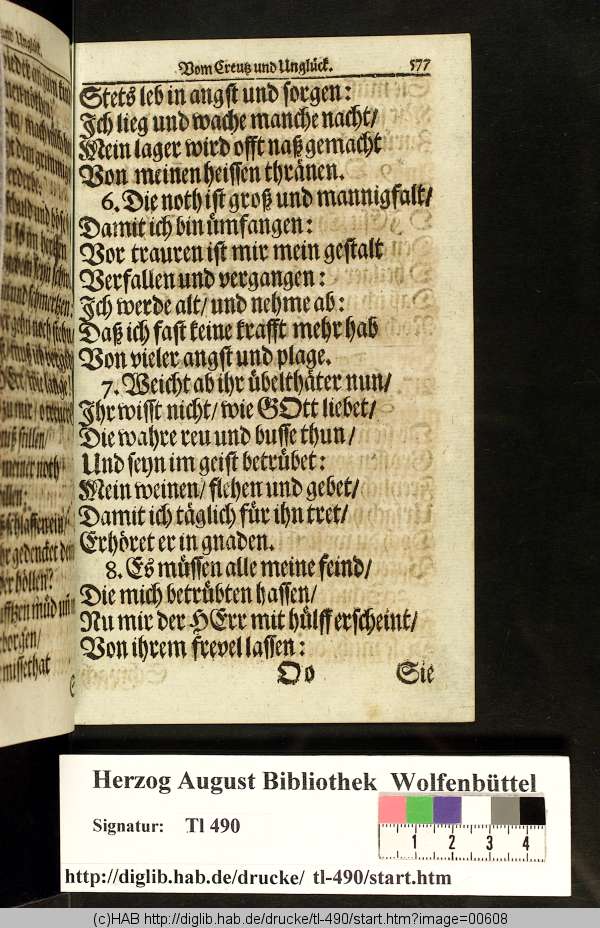 Vom Creutz und Unglück. 577
Stets leb in angst und sorgen:
Ich lieg und wache manche nacht/
Mein lager wird offt naß gemacht
Von meinen heissen thränen.
6. Die noth ist groß und mannigfalt/
Damit ich bin ümfangen:
Vor trauren ist mir mein gestalt
Verfallen und vergangen:
Ich werde alt/ und nehme ab:
Daß ich fast keine krafft mehr hab
Von vieler angst und plage.
7. Weicht ab ihr übelthäter nun/
Ihr wisst nicht/ wie GOtt liebet/
Die wahre reu und busse thun/
Und seyn im geist betrübet:
Mein weinen/ flehen und gebet/
Damit ich täglich für ihn tret/
Erhöret er in gnaden.
8. Es müssen alle meine feind/
Die mich betrübten hassen/
Nu mir der HErr mit hülff erscheint/
Von ihrem frevel lassen:
Oo Sie
Herzog August Bibliothek Wolfenbüttel
Signatur: Tl 490
1 2 3 4
http://diglib.hab.de/drucke/ tl-490/start.htm
(c)HAB http://diglib.hab.de/drucke/tl-490/start.htm?image=00608